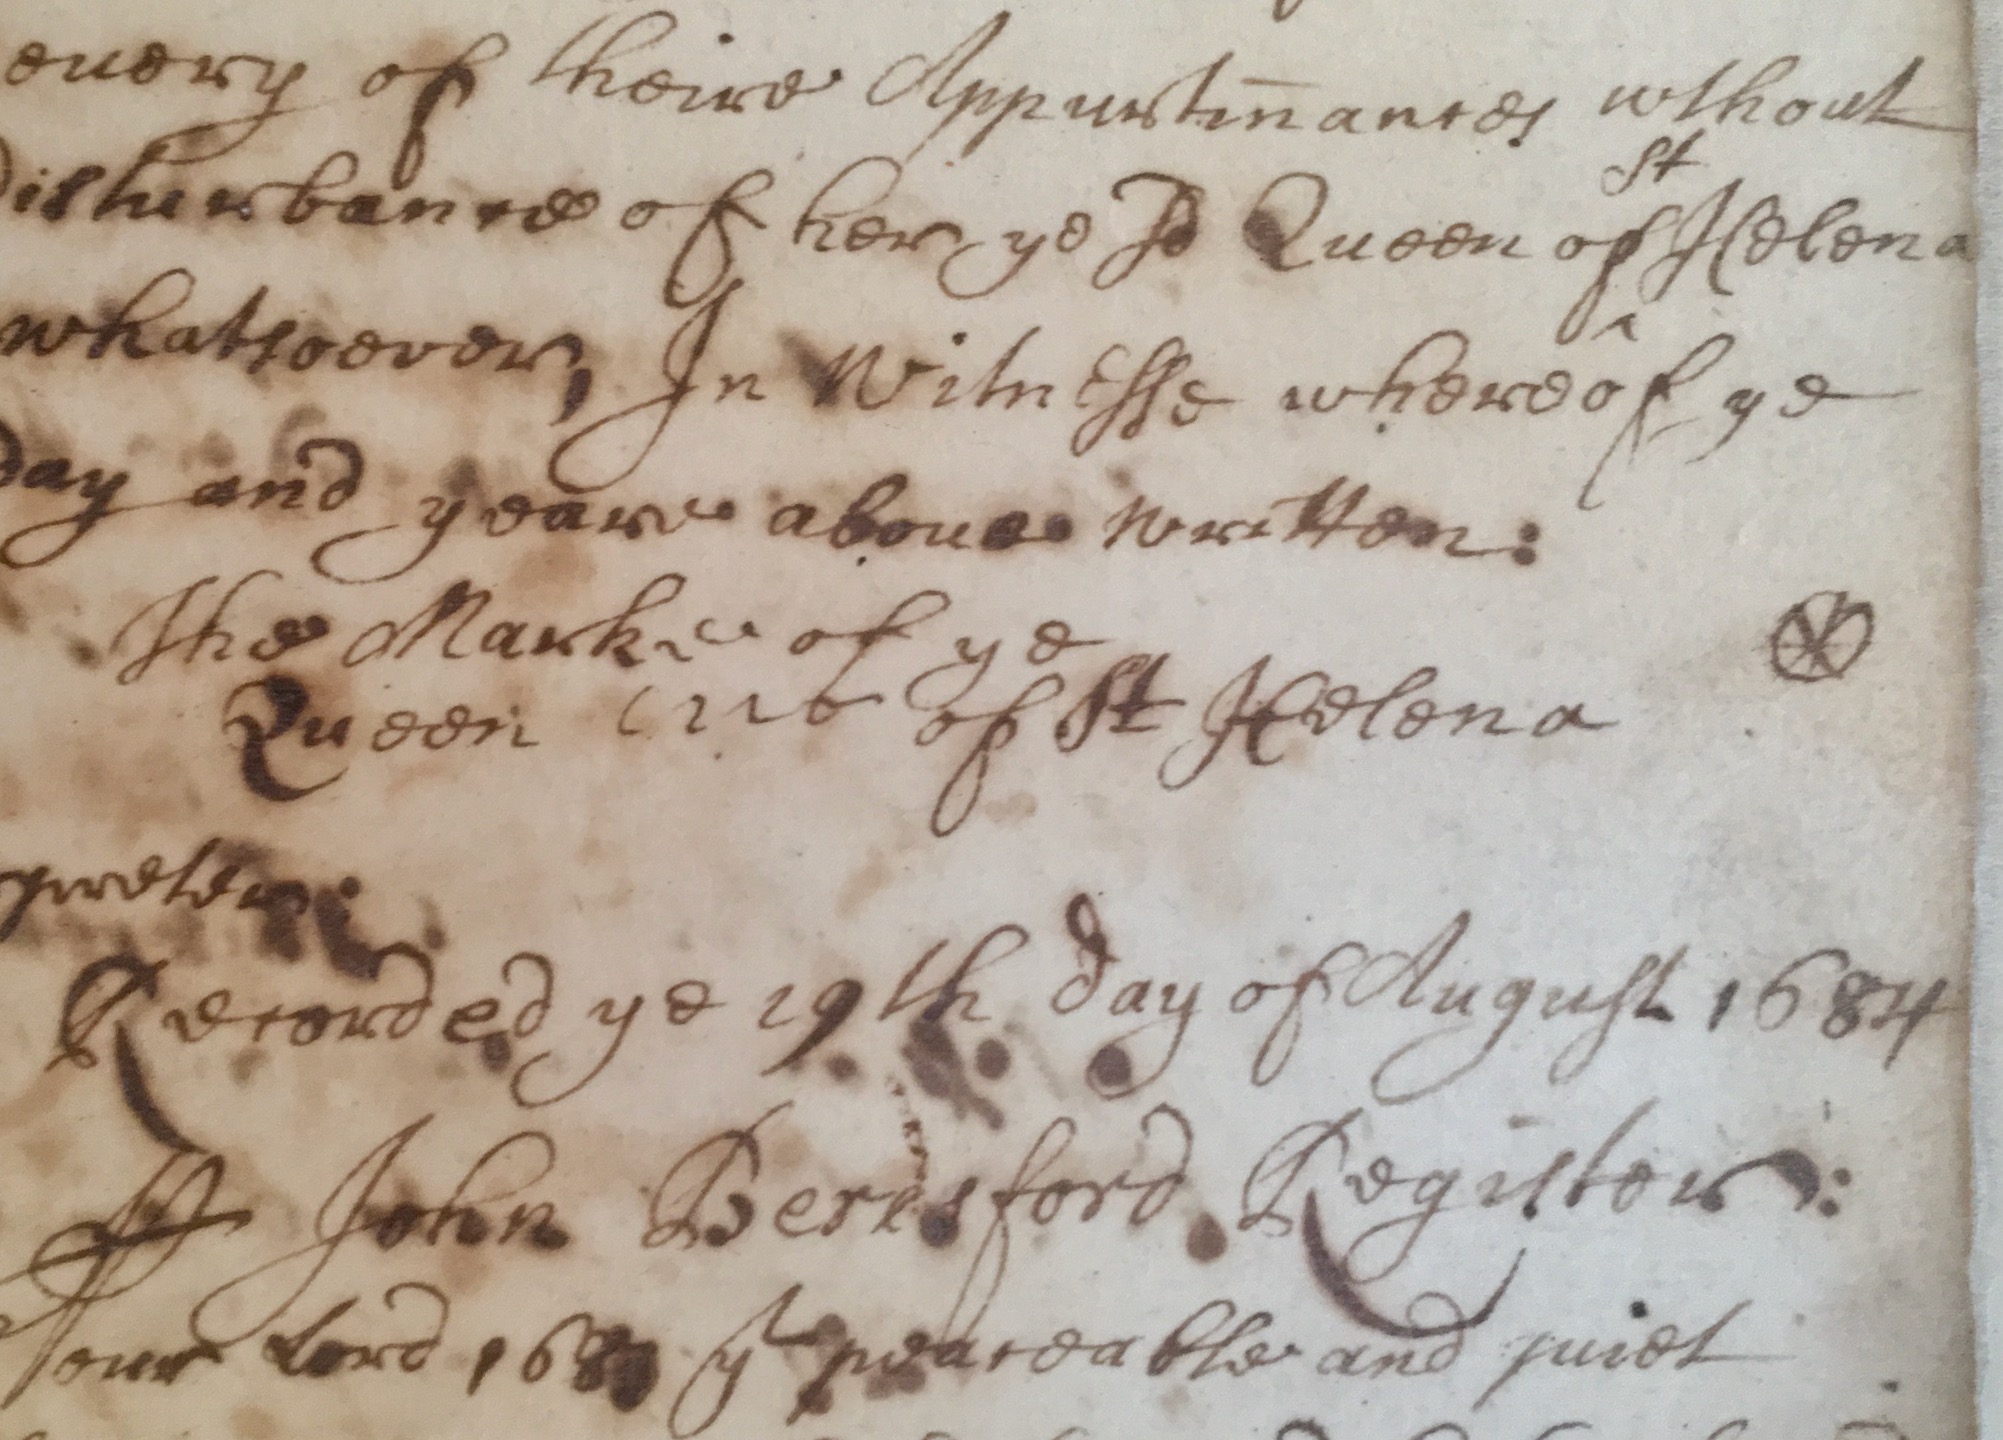 every of theire Appurtin̄ances wthout
Disturbance of her ye sd Queen of st Helena
whatsoever, In Witnesse whereof ye
day and yeare above written:
The Marke of ye
Queen of St Helena
preter:
Recorded ye 19th day of August 1684
John Beresford Register:
our Lord 168 yt peaceable and quiet